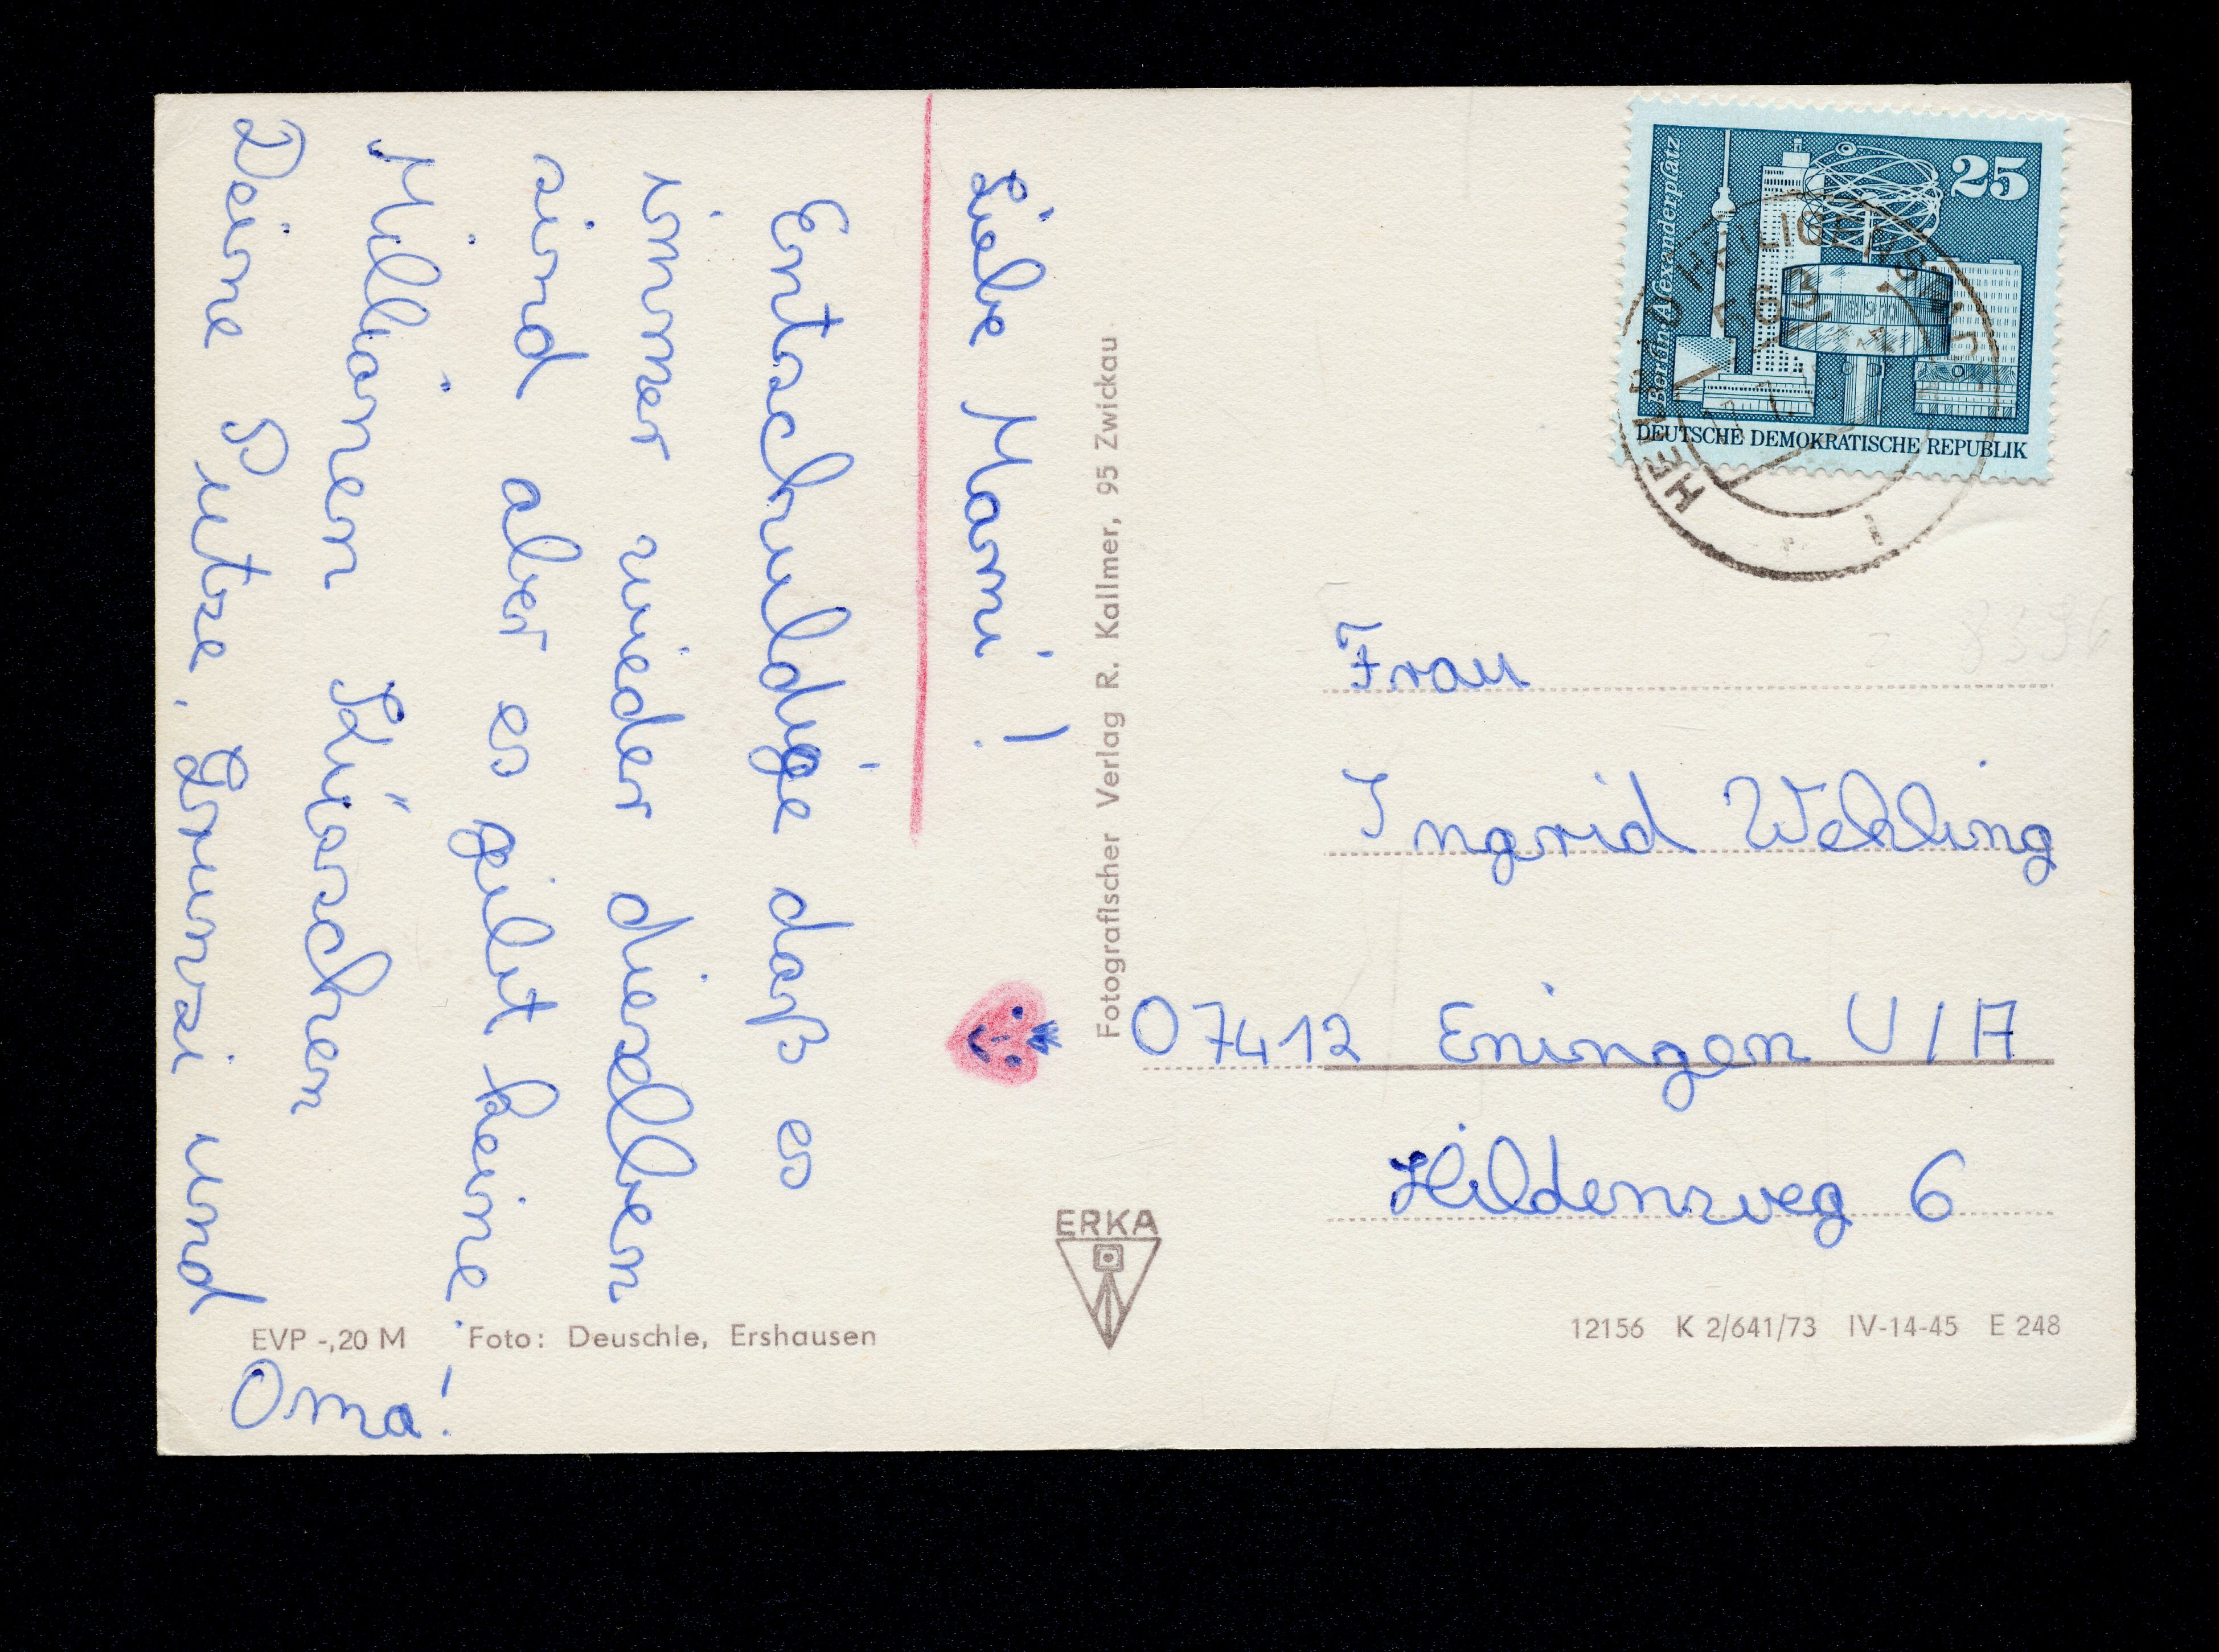 Liebe Mami!
Entschuldige daß es
immer wieder dieselben
sind aber es gibt keine.
Millionen Küsschen
Deine Putze, Grunzi und
Oma!
Fotografischer Verlag R. Kallmer, 95 Zwickau
ERKA
EVP -,20 M Foto: Deuschle, Ershausen
25
Berlin-Alexanderplatz
DEUTSCHE DEMOKRATISCHE REPUBLIK
Frau
Ingrid Wehling
07412 Eningen U/A
Hildenweg 6
12156 K 2/641/73 IV-14-45 E 248